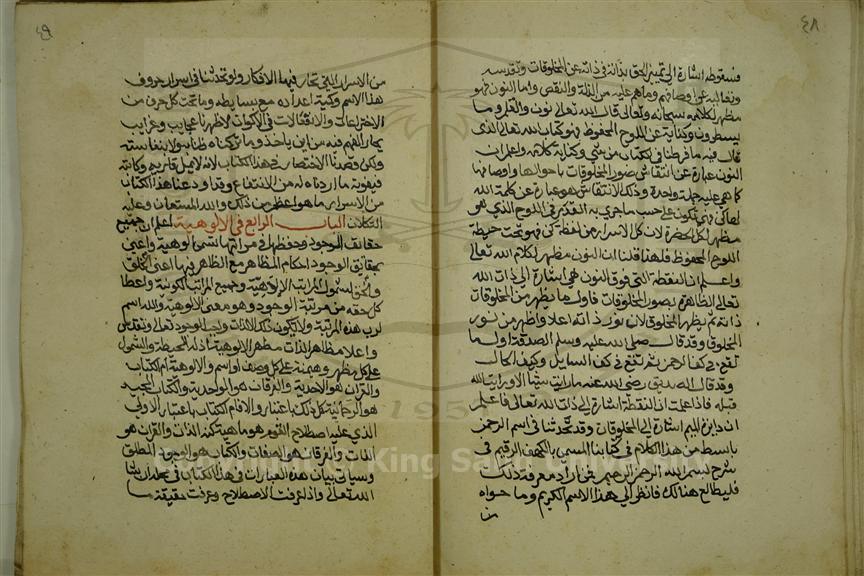 ٤٨
فسقوطه اشارة الى تمييز الحق بذاته في ذاته عن المخلوقات وتقدسه
وتعاليه عن اوصافهم وماهم عليه من الذلة والنقص واما النون فهو
مظهر لكلامه سبحانه وتعالى قال الله تعالى نون والقلم وما
يسطرون وكناية عن اللوح المحفوظ فهو كتاب الله تعالى الذي
قال فيه ما فرطنا في الكتاب من شيء وكناية كلامه واعلم ان
النون عبارة عن انتقاش صور المخلوقات باحوالها واوصافها
كما هي عليه جملة واحدة وذلك الانتقاش هو عبارة عن كلمة الله
لها كن فهي تكون على حسب ما جرى به القلم في اللوح الذي هو
مظهر لكلمة الحضرة لان كل ما صدر من لفظة كن فهو تحت حيطة
اللوح المحفوظ فلهذا قلنا ان النون مظهر لكلام الله تعالى
واعلم ان النقطة التي فوق النون هي اشارة الى ذات الله
تعالى الظاهرة بصور المخلوقات فاول ما يظهر من المخلوقات
ذاته ثم يظهر المخلوق لان نور ذاته اعلا واظهر من نور
المخلوق وقد قال صلى الله عليه وسلم الصدقة اول ما
تقع في كف الرحمن ثم تقع في كف السايل وكيف الحال
وقد قال الصديق رضي الله عنه ما رايت شيئا الا ورايت الله
قبله فاذا علمت ان النقطة اشارة الى ذات الله تعالى فاعلم
ان دايرة الميم اشارة الى المخلوقات وقد تحدثنا في اسم الرحمن
بابسط من هذا الكلام في كتابنا المسمى بالكهف الرقيم في
شرح بسم الله الرحمن الرحيم فمن اراد معرفة ذلك
فليطالع هنالك فانظر الى هذا الاسم الكريم وما حواه
من
٤٩
من الاسرار التي تحار فيها الافكار ولو تحدثنا في اسرار حروف
هذا الاسم وكمية اعداده مع بسايطه وما تحت كل حرف من
الاختراعات والانفعالات في الاكوان لاظهرنا عجايب وغرايب
يحار الفهم فيه من اين ياخذ وما تركناه ظنا ولا بنفاسته
ولكن قصدنا الاختصار في هذا الكتاب لئلا يمل قاريه وكاتبه
فيفوته ما اردناه له من الانتفاع وقد اودعنا هذا الكتاب
من الاسرار ما هو اعظم من ذلك والله المستعان وعليه
التكلان الباب الرابع في الالوهية اعلم ان جميع
حقائق الوجود وحفظها في مراتبها تسمى الوهية واعني
بحقايق الوجود احكام المظاهر مع الظاهر فيها اعني الخلق
والحق لشمول المراتب الالهية وجميع المراتب الكونية واعطا
كل حقه من مرتبة الوجود وهو معنى الالوهية والله اسم
لرب هذه المرتبة ولا يكون ذلك الا لذات واجب الوجود تعالى وتقدس
واعلا مظاهر الذات مظهر الالوهية اذ له الحيطة والشمول
على كل مظهر وهيمنة على كل وصف او اسم والالوهية ام الكتاب
والقران هو الاحدية والفرقان هو الواحدية والكتاب المجيد
هو الرحمانية كل ذلك باعتبار والا فام الكتاب باعتبار الاولى
الذي عليه اصطلاح القوم هو ماهية كنه الذات والقران هو
الذات والفرقان هو الصفات والكتاب هو الوجود المطلق
وسياتي بيان هذه العبارات في هذا الكتاب في محله ان شا
الله تعالى واذا عرفت الاصطلاح وعرفت حقيقة ما
King Sa
195